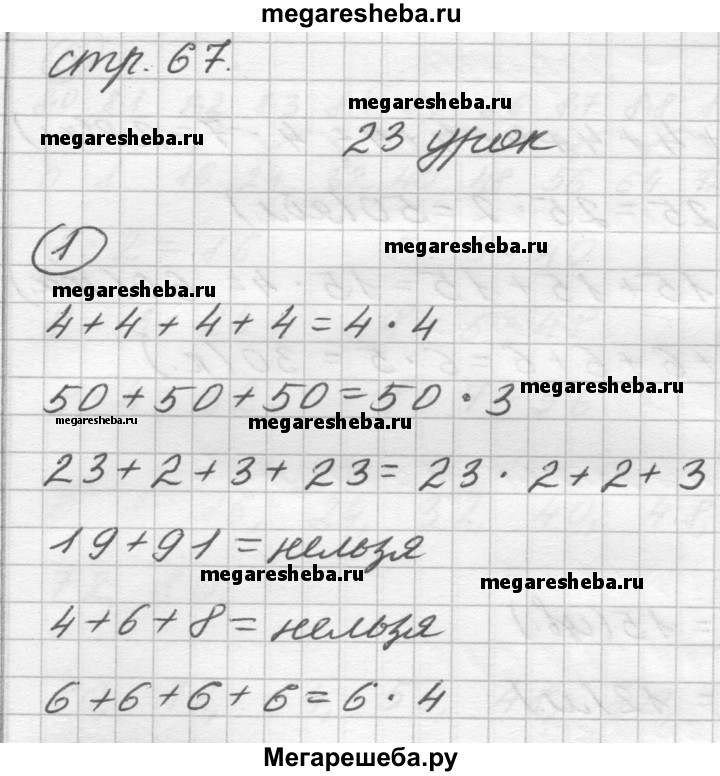 megaresheba.ru
стр. 67.
megaresheba.ru
megaresheba.ru
23 урок
1
megaresheba.ru
megaresheba.ru
4+4+4+4=4·4
megaresheba.ru
50+50+50=50·3
megaresheba.ru
megaresheba.ru
23+2+3+23=23·2+2+3
19+91=нельзя
megaresheba.ru
megaresheba.ru
4+6+8=нельзя
6+6+6+6=6·4
Мегарешеба.ру